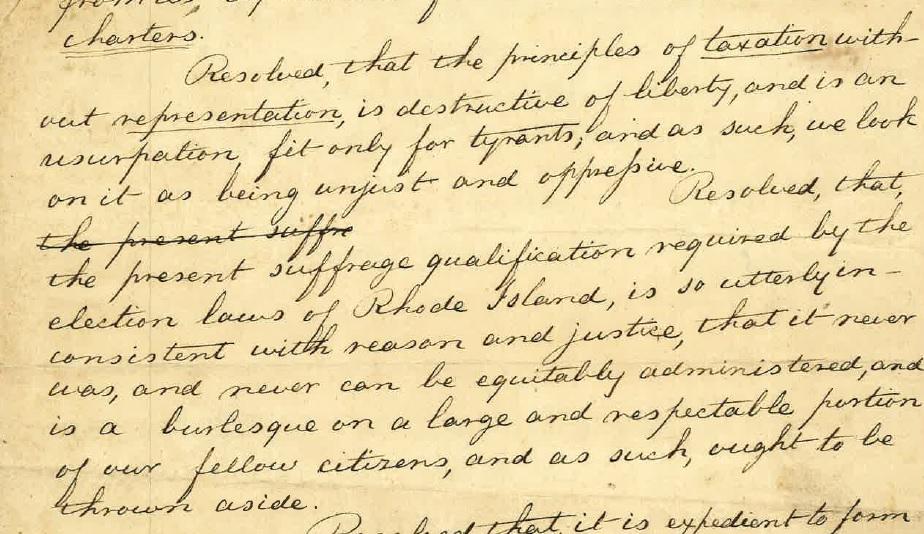 charters.
Resolved, that the principles of taxation with-
out representation, is destructive of liberty, and is an
usurpation, fit only for tyrants; and as such, we look
on it as being unjust and oppressive.
Resolved, that,
the present suffre
the present suffrage qualification required by the
election laws of Rhode Island, is so utterly in-
consistent with reason and justice, that it never
was, and never can be equitably administered, and
is a burlesque on a large and respectable portion
of our fellow citizens, and as such, ought to be
thrown aside.
Resolved that it is expedient to form